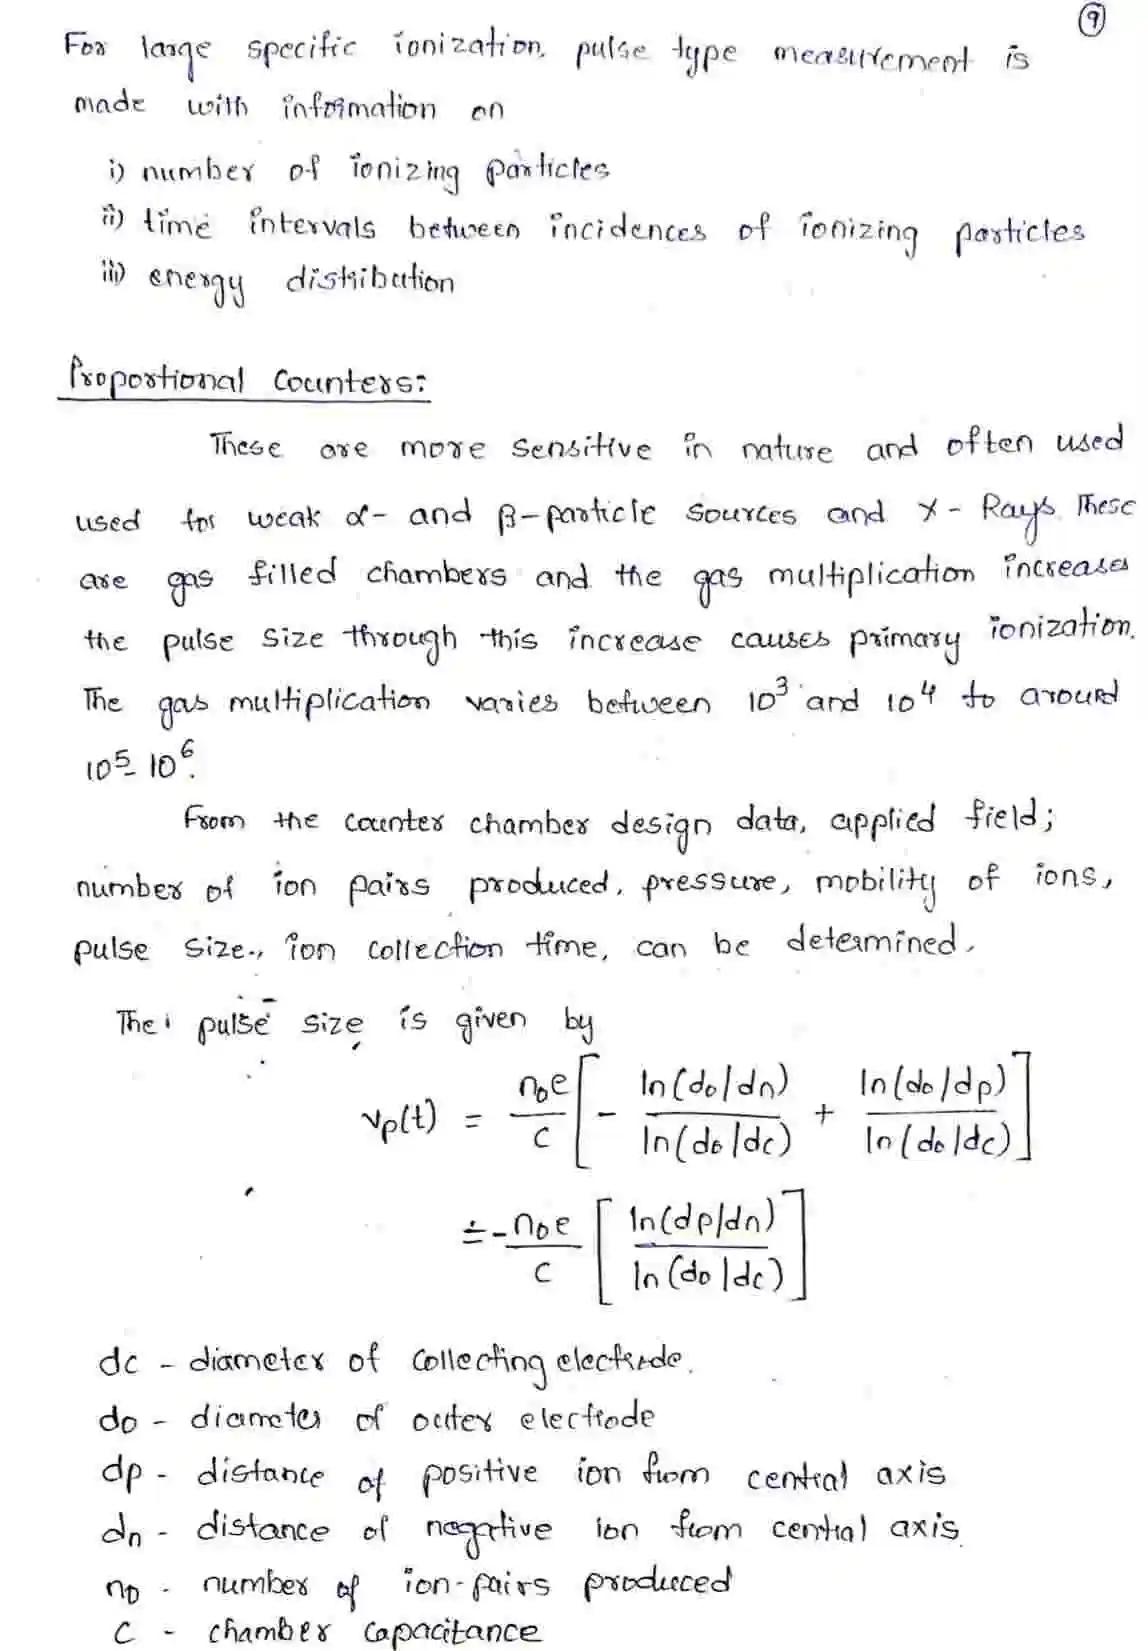 9
For large specific ionization, pulse type measurement is
made with information on
i) number of ionizing particles
ii) time intervals between incidences of ionizing particles
iii) energy distribution
Proportional Counters:
These are more sensitive in nature and often used
used for weak α- and β-particle sources and X-Rays. These
are gas filled chambers and the gas multiplication increases
the pulse size through this increase causes primary ionization.
The gas multiplication varies between 10³ and 10⁴ to around
10⁵-10⁶.
From the counter chamber design data, applied field;
number of ion pairs produced, pressure, mobility of ions,
pulse size., ion collection time, can be determined.
The pulse size is given by
vp(t) = n₀e/c [ - ln(do/dn)/ln(do/dc) + ln(do/dp)/ln(do/dc) ]
≐ - n₀e/c [ ln(dp/dn)/ln(do/dc) ]
dc - diameter of collecting electrode.
do - diameter of outer electrode
dp - distance of positive ion from central axis
dn - distance of negative ion from central axis.
n₀ - number of ion-pairs produced
C - chamber capacitance